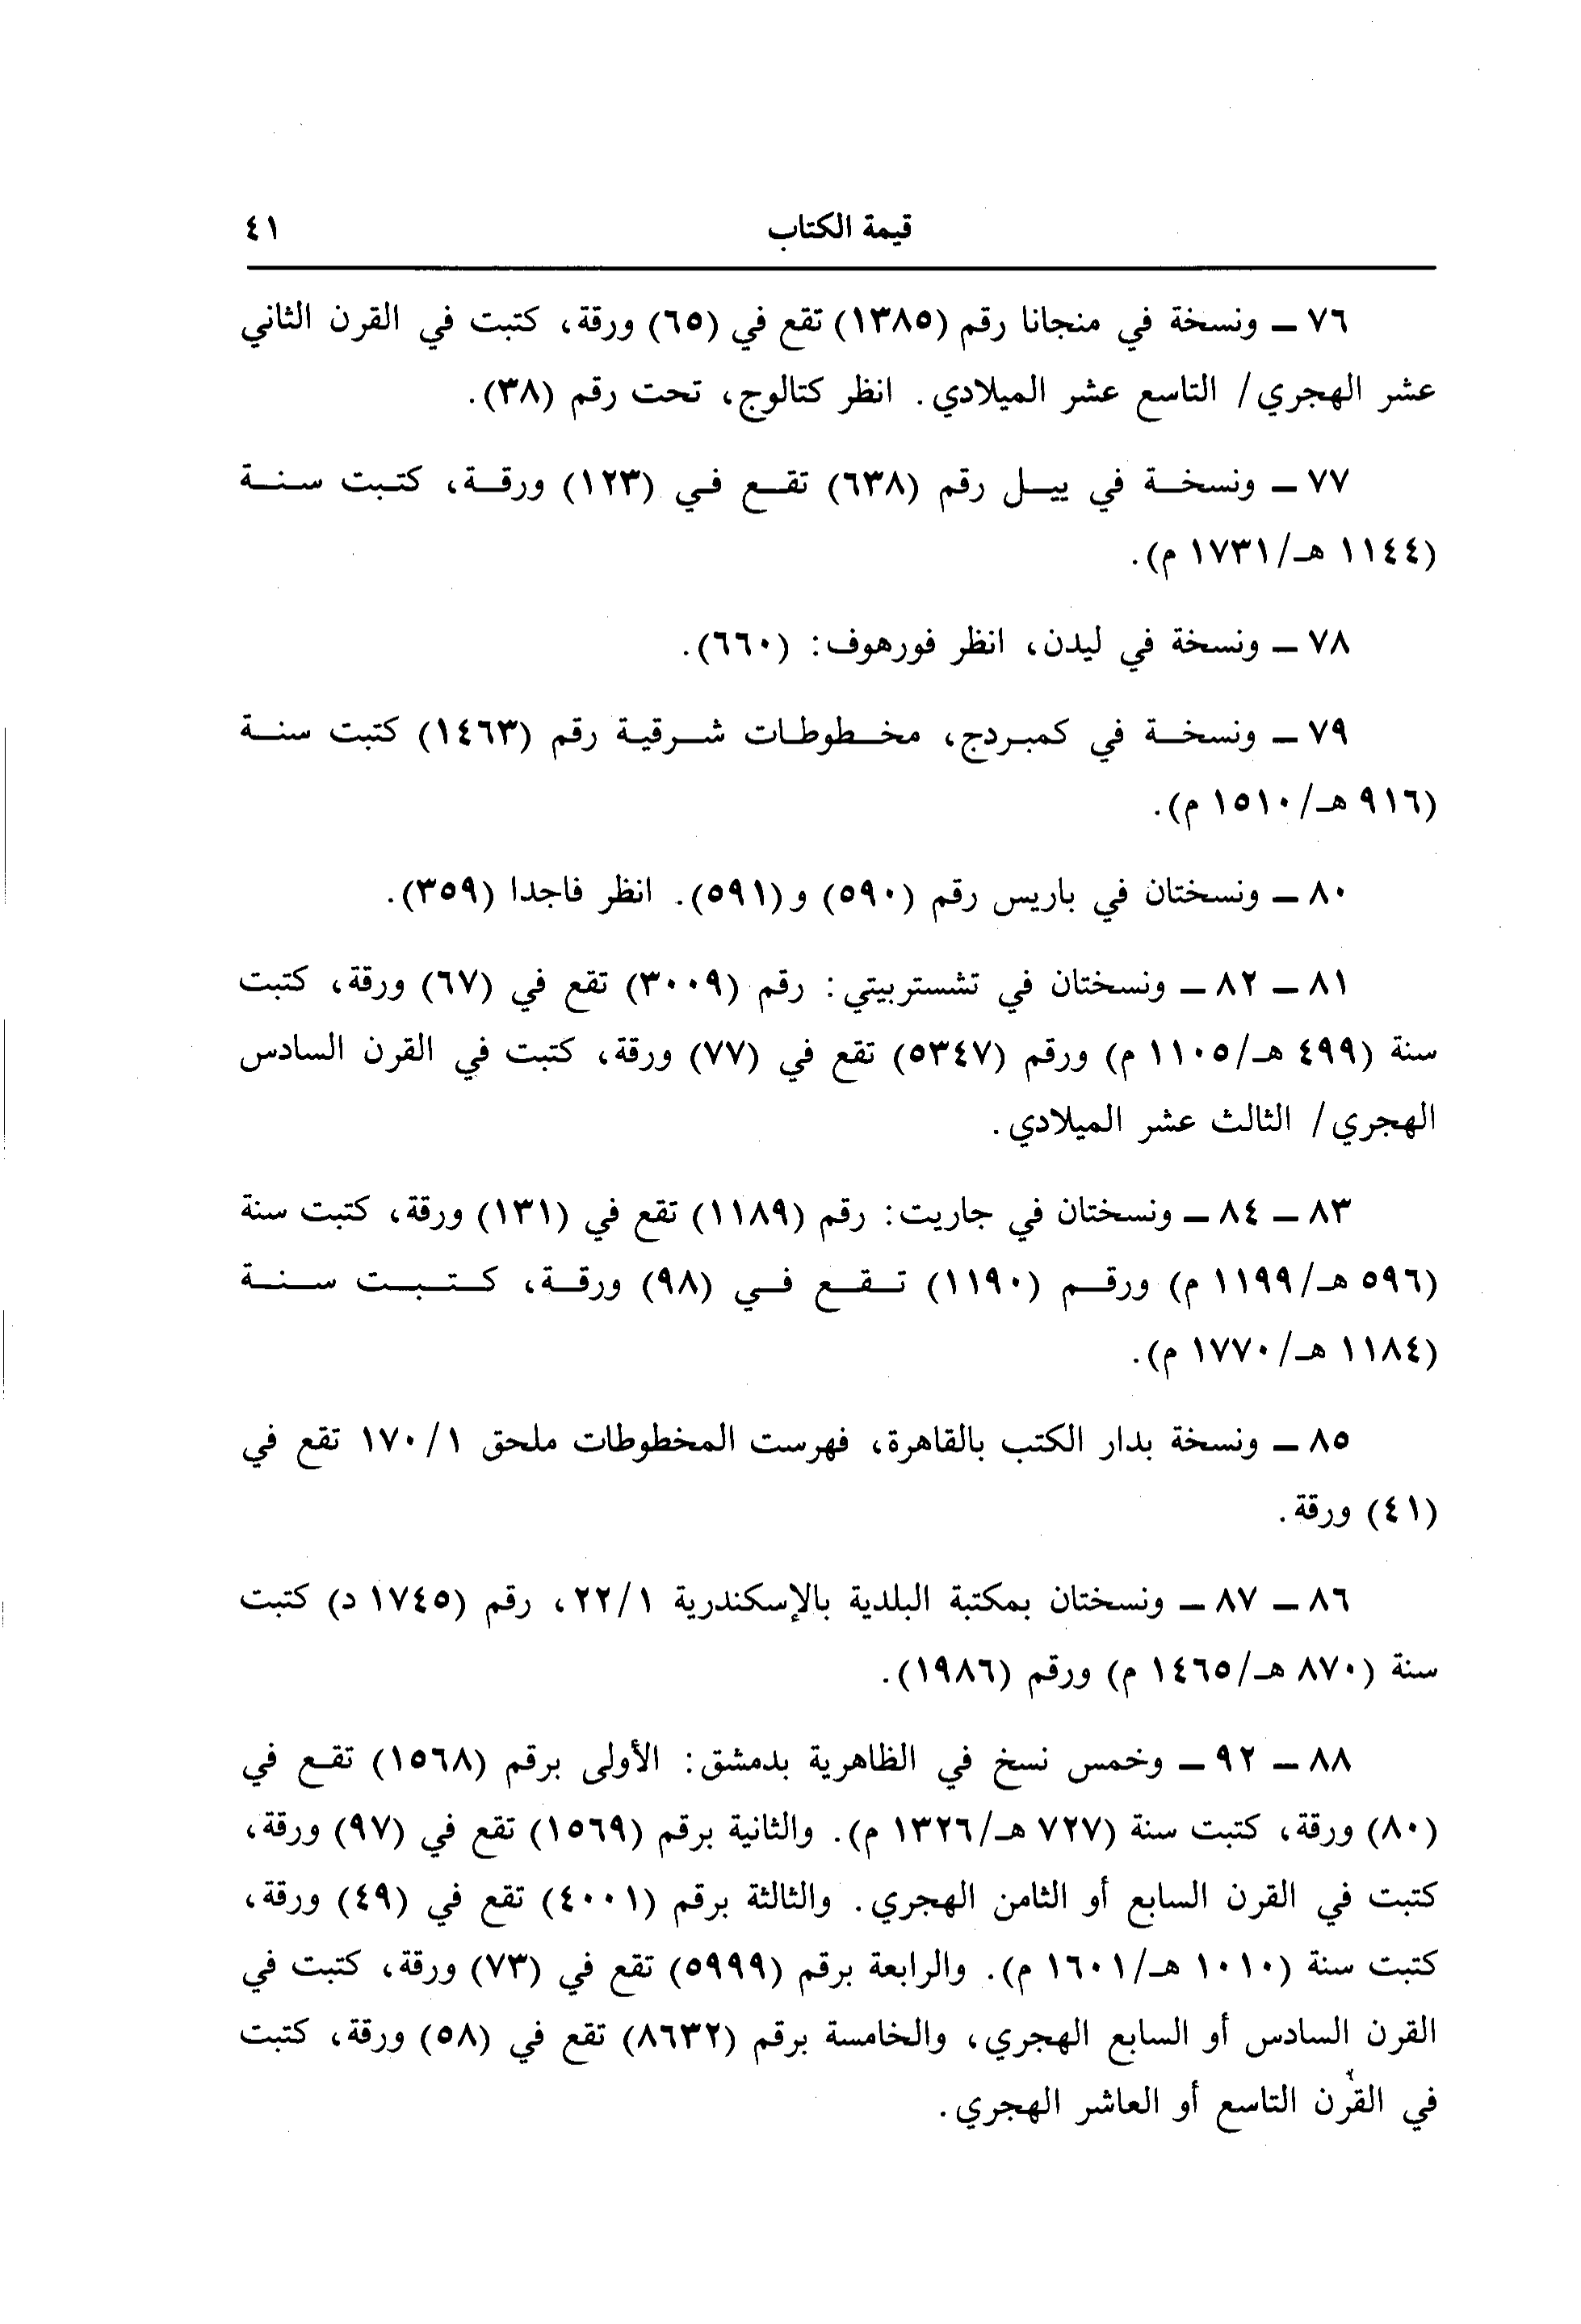 قيمة الكتاب ٤١
٧٦ ــ ونسخة في منجانا رقم (١٣٨٥) تقع في (٦٥) ورقة، كتبت في القرن الثاني
عشر الهجري/ التاسع عشر الميلادي. انظر كتالوج، تحت رقم (٣٨).
٧٧ ــ ونسخة في ييل رقم (٦٣٨) تقع في (١٢٣) ورقة، كتبت سنة
(١١٤٤ هـ/١٧٣١ م).
٧٨ ــ ونسخة في ليدن، انظر فورهوف: (٦٦٠).
٧٩ ــ ونسخة في كمبردج، مخطوطات شرقية رقم (١٤٦٣) كتبت سنة
(٩١٦ هـ/١٥١٠ م).
٨٠ ــ ونسختان في باريس رقم (٥٩٠) و(٥٩١). انظر فاجدا (٣٥٩).
٨١ ــ ٨٢ ــ ونسختان في تشستربيتي: رقم (٣٠٠٩) تقع في (٦٧) ورقة، كتبت
سنة (٤٩٩ هـ/١١٠٥ م) ورقم (٥٣٤٧) تقع في (٧٧) ورقة، كتبت في القرن السادس
الهجري/ الثالث عشر الميلادي.
٨٣ ــ ٨٤ ــ ونسختان في جاريت: رقم (١١٨٩) تقع في (١٣١) ورقة، كتبت سنة
(٥٩٦ هـ/١١٩٩ م) ورقم (١١٩٠) تقع في (٩٨) ورقة، كتبت سنة
(١١٨٤ هـ/١٧٧٠ م).
٨٥ ــ ونسخة بدار الكتب بالقاهرة، فهرست المخطوطات ملحق ١/١٧٠ تقع في
(٤١) ورقة.
٨٦ ــ ٨٧ ــ ونسختان بمكتبة البلدية بالإسكندرية ١/٢٢، رقم (١٧٤٥ د) كتبت
سنة (٨٧٠ هـ/١٤٦٥ م) ورقم (١٩٨٦).
٨٨ ــ ٩٢ ــ وخمس نسخ في الظاهرية بدمشق: الأولى برقم (١٥٦٨) تقع في
(٨٠) ورقة، كتبت سنة (٧٢٧ هـ/١٣٢٦ م). والثانية برقم (١٥٦٩) تقع في (٩٧) ورقة،
كتبت في القرن السابع أو الثامن الهجري. والثالثة برقم (٤٠٠١) تقع في (٤٩) ورقة،
كتبت سنة (١٠١٠ هـ/١٦٠١ م). والرابعة برقم (٥٩٩٩) تقع في (٧٣) ورقة، كتبت في
القرن السادس أو السابع الهجري، والخامسة برقم (٨٦٣٢) تقع في (٥٨) ورقة، كتبت
في القرن التاسع أو العاشر الهجري.